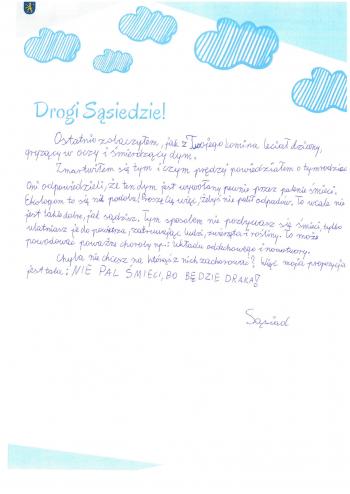 Drogi Sąsiedzie!
Ostatnio zobaczyłem, jak z Twojego komina leciał duszący,
gryzący w oczy i śmierdzący dym.
Zmartwiłem się tym i czym prędzej powiedziałem o tym rodzicom.
Oni odpowiedzieli, że ten dym jest wywołany pewnie przez palenie śmieci.
Ekologom to się nie podoba! Proszę Cię więc, żebyś nie palił odpadów. To wcale nie
jest takie dobre, jak sądzisz. Tym sposobem nie pozbywasz się śmieci, tylko
ulatniasz je do powietrza, zatruwając ludzi, zwierzęta i rośliny. To może
powodować poważne choroby np.: układu oddechowego i nowotwory.
Chyba nie chcesz na którąś z nich zachorować? Więc moja propozycja
jest taka: NIE PAL ŚMIECI, BO BĘDZIE DRAKA!
Sąsiad